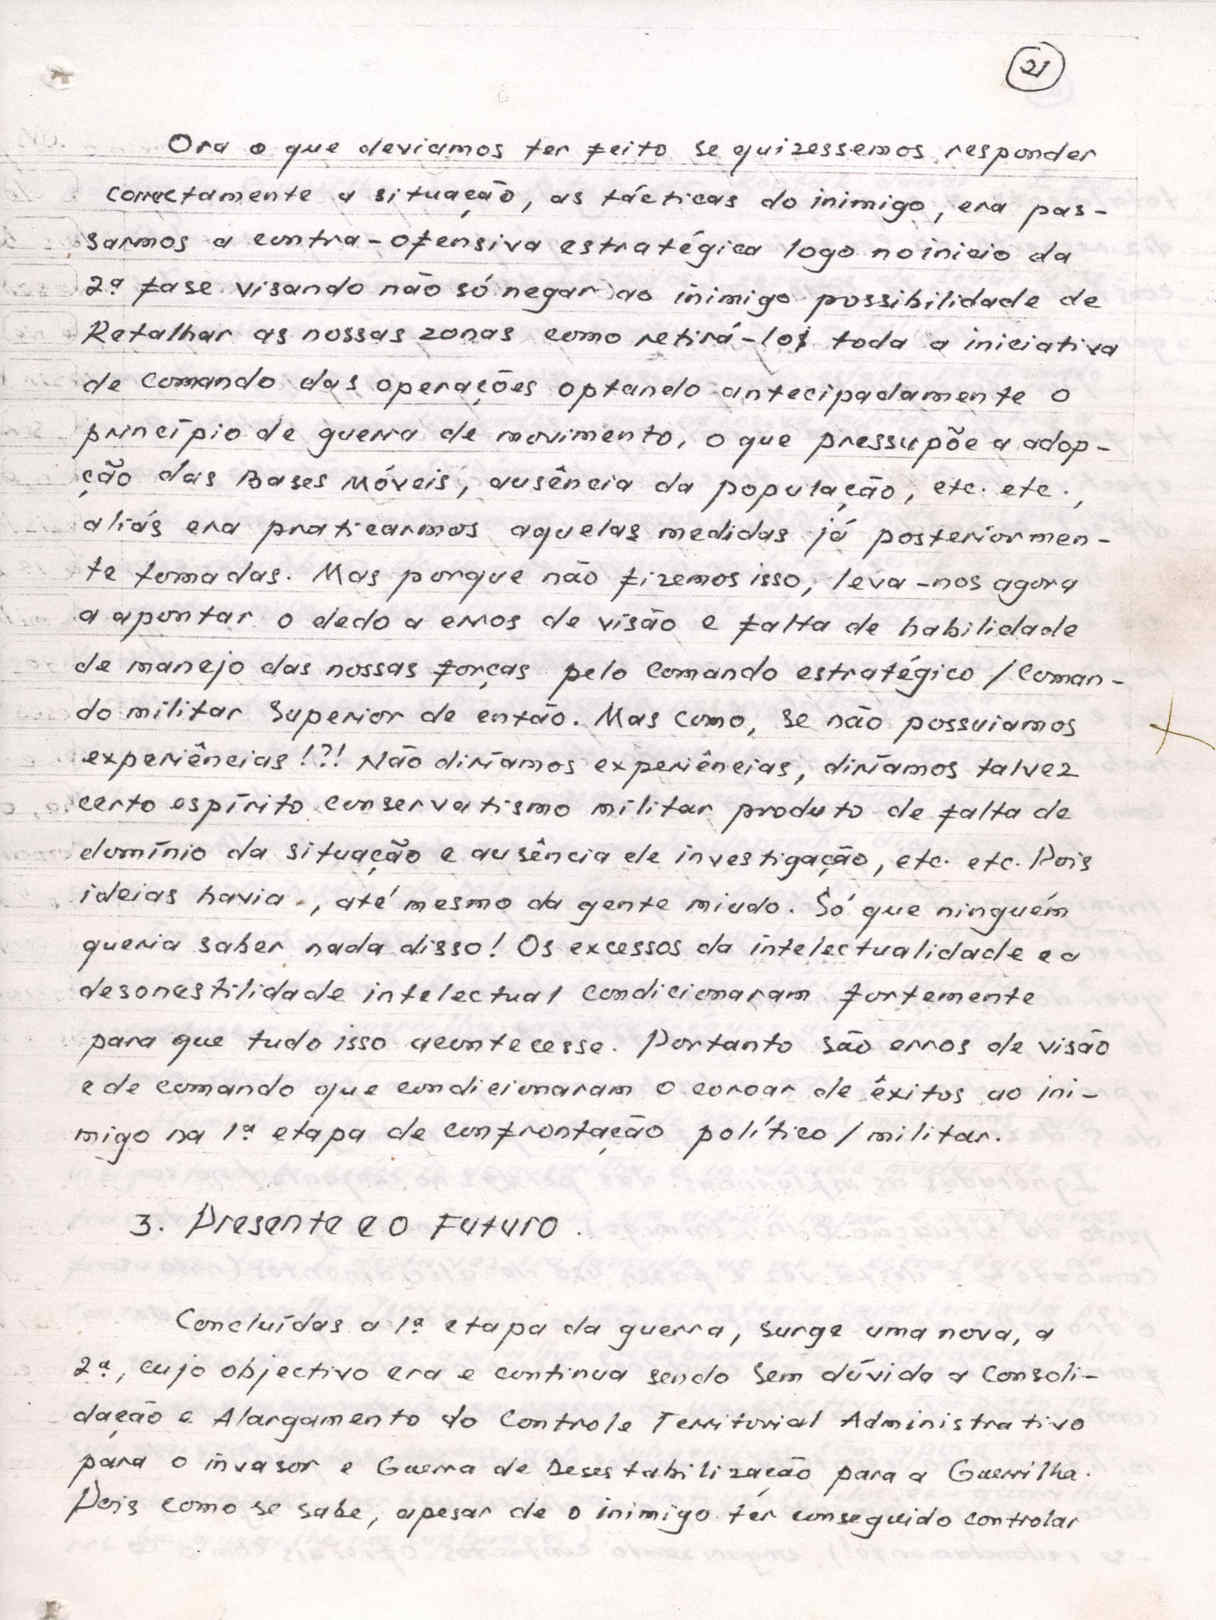 21
Ora o que deviamos ter feito se quizessemos responder
correctamente a situação, as tácticas do inimigo, era pas-
sarmos a contra-ofensiva estratégica logo no inicio da
2ª fase visando não só negar ao inimigo possibilidade de
Retalhar as nossas zonas como retirá-los toda a iniciativa
de comando das operações optando antecipadamente o
princípio de guerra de movimento, o que pressupõe a adop-
ção das Bases Móveis, ausência da população, etc. etc.,
aliás era praticarmos aquelas medidas já posteriormen-
te tomadas. Mas porque não fizemos isso, leva-nos agora
a apontar o dedo a erros de visão e falta de habilidade
de manejo das nossas forças pelo comando estratégico / coman-
do militar Superior de então. Mas como, se não possuiamos
experiências!?! Não diríamos experiências, diríamos talvez
certo espírito conservatismo militar produto de falta de
domínio da situação e ausência de investigação, etc. etc. Pois
ideias havia, até mesmo da gente miudo. Só que ninguém
queria saber nada disso! Os excessos da intelectualidade e a
desonestilidade intelectual condicionaram fortemente
para que tudo isso acontecesse. Portanto são erros de visão
e de comando que condicionaram o coroar de êxitos ao ini-
migo na 1ª etapa de confrontação político / militar.
3. Presente e o Futuro.
Concluídas a 1ª etapa da guerra, surge uma nova, a
2ª, cujo objectivo era e continua sendo sem dúvida a Consoli-
dação e Alargamento do Controle Territorial Administrativo
para o invasor e Guerra de Desestabilização para a Guerrilha.
Pois como se sabe, apesar de o inimigo ter conseguido controlar